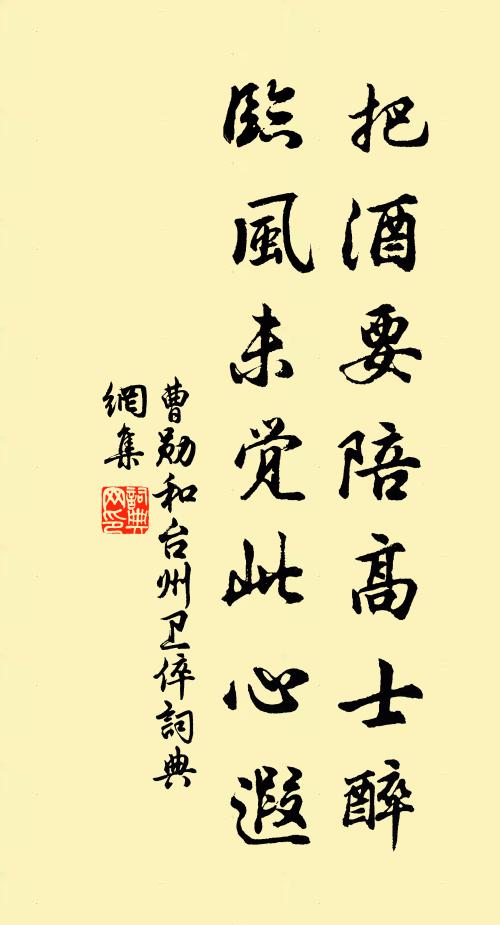 把酒要陪高士醉
臨風未覺此心遐
曹勋和台州卫倅詞典
網集
詞典
网印